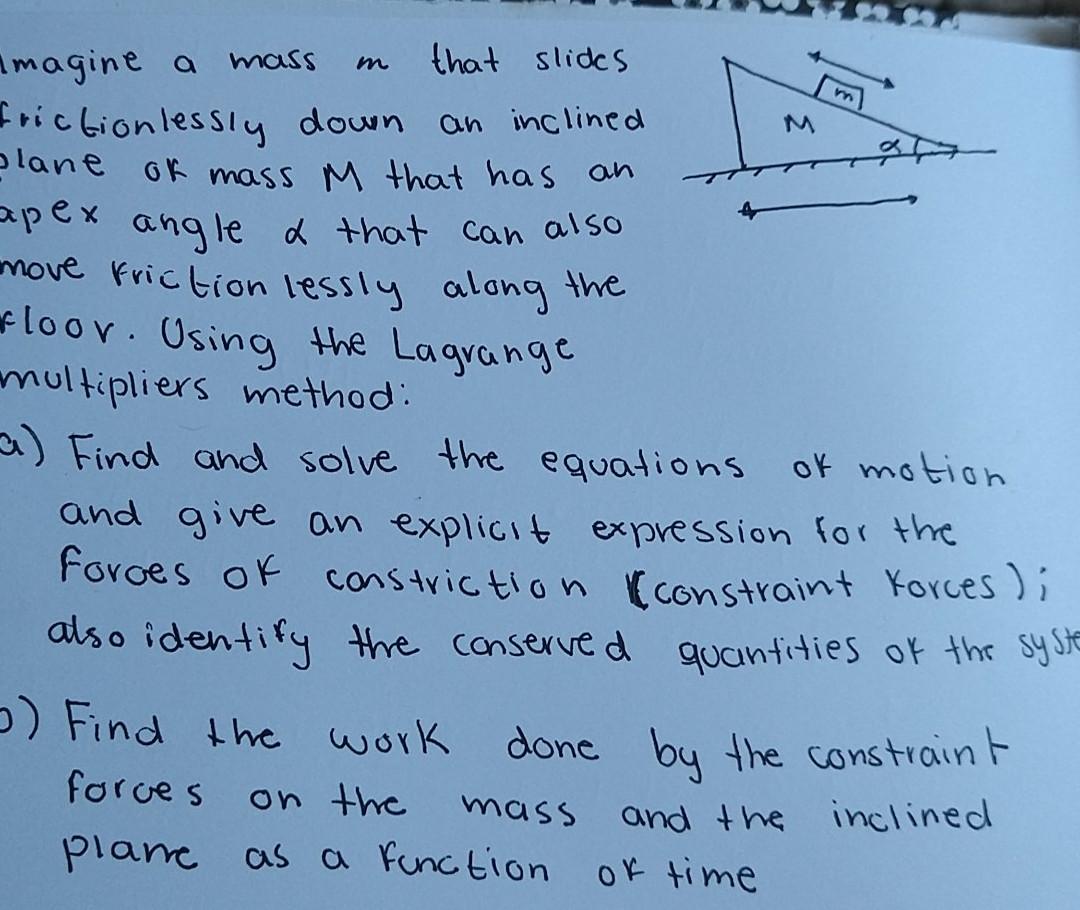 Imagine a mass m that slides
frictionlessly down an inclined
plane of mass M that has an
apex angle α that can also
move frictionlessly along the
floor. Using the Lagrange
multipliers method:
a) Find and solve the equations of motion
and give an explicit expression for the
forces of constriction (constraint forces);
also identify the conserved quantities of the syste
b) Find the work done by the constraint
forces on the mass and the inclined
plane as a function of time
m
M
α